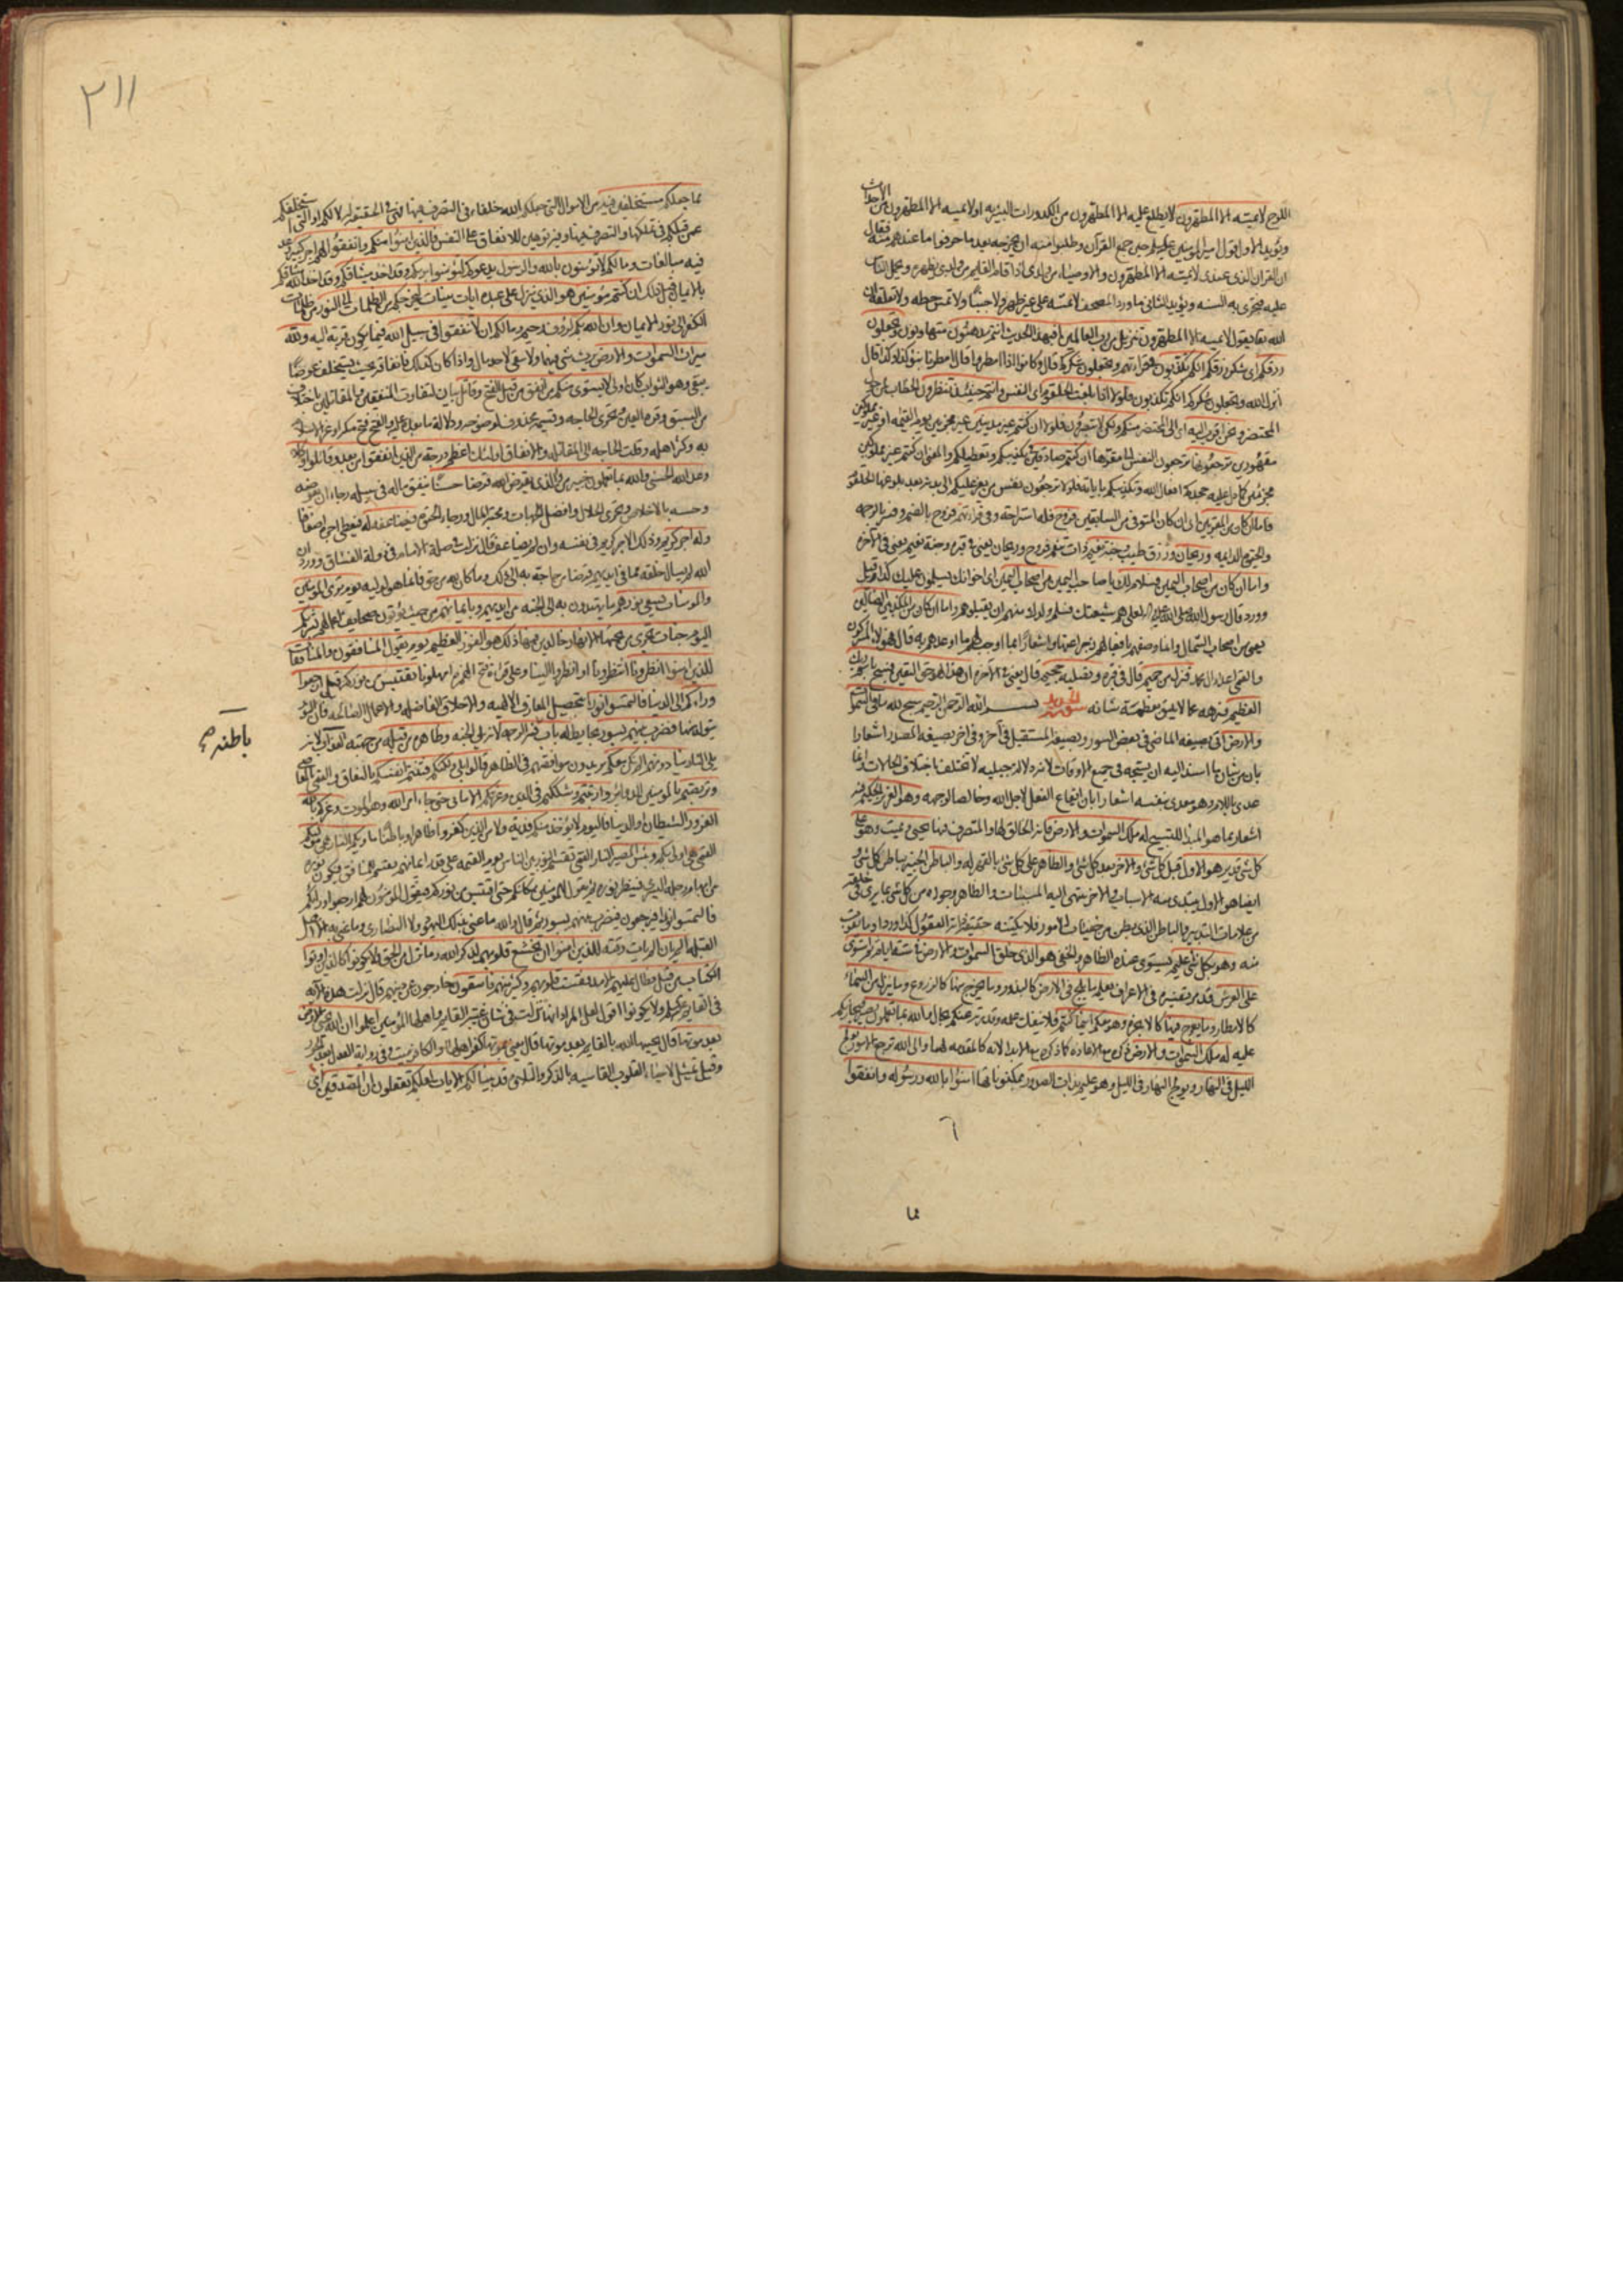 اللوح لا يمسه الا المطهرون لا يطلع عليه الا المطهرون من الكدورات البشريه او لا يمسه الا المطهرون من الاحداث
ويؤيد الاول قول امير المؤمنين حين جمع القرآن وطلبوا منه ان يخرجه بعد ما حرفوا ما عندهم منه فقال
ان القران الذى عندى لا يمسه الا المطهرون والاوصياء من ولدى اذا قام القايم من ولدى يظهره ويحمل الناس
عليه فتجرى به السنه ويؤيد الثانى ما ورد المصحف لا تمسه على غير طهر ولا جنبا ولا تمس خطه ولا تعلقه ان
الله تعالى يقول لا يمسه الا المطهرون تنزيل من رب العالمين أفبهذا الحديث انتم مدهنون متهاونون وتجعلون
رزقكم اى شكر رزقكم انكم تكذبون وقراءتهم وتجعلون شكركم قال وكانوا اذا امطروا قالوا مطرنا بنؤ كذا وكذا قال
انزل الله وتجعلون شكركم انكم تكذبون فلولا اذا بلغت الحلقوم اى النفس وانتم حينئذ تنظرون الخطاب لمن حول
المحتضر ونحن اقرب اليه اى الى المحتضر منكم ولكن لا تبصرون فلولا ان كنتم غير مدينين غير مجزيين يوم القيمه او غير مملوكين
مقهورين ترجعونها ترجعون النفس الى مقرها ان كنتم صادقين فى تكذيبكم وتعطيلكم والمعنى ان كنتم غير مملوكين
مجزيين كما دل عليه جحدكم افعال الله وتكذيبكم باياته فلولا ترجعون نفس من يعز عليكم الى بدنه بعد بلوغها الحلقوم
فاما ان كان من المقربين اى ان كان المتوفى من السابقين فروح فله استراحة وفى قراءتهم فروح بالضم وفسر بالرحمه
والحيوة الدايمه وريحان ورزق طيب وجنة نعيم ذات تنعم فروح وريحان يعنى فى قبره وجنة نعيم يعنى فى الآخره
واما ان كان من اصحاب اليمين فسلام لك يا صاحب اليمين من اصحاب اليمين اى اخوانك يسلمون عليك كذا قيل
وورد قال رسول الله صلى الله عليه واله لعلى هم شيعتك فسلم ولدك منهم ان يقتلوهم واما ان كان من المكذبين الضالين
يعنى من اصحاب الشمال وانما وصفهم بافعالهم زجرا عنها واشعارا بما اوجب لهم ما اوعدهم به قال هؤلاء المشركون
والقمى اعداء ال محمد فنزل من حميم قال فى قبره وتصلية جحيم قال يعنى فى الآخره ان هذا لهو حق اليقين فسبح باسم ربك
العظيم فنزهه عما لا يليق بعظمة شانه سورة الحديد بسم الله الرحمن الرحيم سبح لله ما فى السموات
والارض اتى بصيغه الماضى فى بعض السور وبصيغة المستقبل فى آخر وفى اخر بصيغه المصدر اشعارا
بان من شان ما اسند اليه ان يسبحه فى جميع الاوقات لانه دلالة جبليه لا تختلف باختلاف الحالات وانما
عدى باللام وهو معدى بنفسه اشعارا بان ايقاع الفعل لاجل الله وخالصا لوجهه وهو العزيز الحكيم فيه
اشعار بما هو المبدا للتسبيح له ملك السموات والارض فانه الخالق لها والمتصرف فيها يحيى ويميت وهو على
كل شئ قدير هو الاول قبل كل شئ والاخر بعد كل شئ والظاهر على كل شئ بالقهر له والباطن الخبير بباطن كل شئ و
ايضا هو الاول يبتدى منه الاسباب والاخر ينتهى اليه المسببات والظاهر وجوده من كل شئ بما يرى فى خلقه
من علامات التدبير والباطن الذى بطن من خفيات الامور فلا يكتنه حقيقة ذاته العقول كذا ورد
وهو بكل شئ عليم يستوى عنده الظاهر والخفى هو الذى خلق السموات والارض فى ستة ايام ثم استوى
على العرش قد مر تفسيره فى الاعراف يعلم ما يلج فى الارض كالبذور وما يخرج منها كالزروع وما ينزل من السماء
كالامطار وما يعرج فيها كالابخره وهو معكم اينما كنتم فلا ينفك علمه وقدرته عنكم بحال والله بما تعملون بصير فيجازيكم
عليه له ملك السموات والارض ذكره مع الاعاده كما ذكره مع الابداء لانه كالمقدمه لهما والى الله ترجع الامور يولج
الليل فى النهار ويولج النهار فى الليل وهو عليم بذات الصدور بمكنوناتها امنوا بالله ورسوله وانفقوا
مما
٢١١
مما جعلكم مستخلفين فيه من الاموال التى جعلكم الله خلفاء فى التصرف فيها فهى فى الحقيقه له لا لكم او التى استخلفكم
عمن قبلكم فى تملكها والتصرف فيها وفيه توهين للانفاق على النفس فالذين امنوا منكم وانفقوا لهم اجر كبير وعد
فيه مبالغات وما لكم لا تؤمنون بالله والرسول يدعوكم لتؤمنوا بربكم وقد اخذ ميثاقكم وقد اخذ الله ميثاقكم
بالايمان قبل ذلك ان كنتم مؤمنين هو الذى ينزل على عبده ايات بينات ليخرجكم من الظلمات الى النور من ظلمات
الكفر الى نور الايمان وان الله بكم لرؤف رحيم وما لكم ان لا تنفقوا فى سبيل الله فيما يكون قربة اليه ولله
ميراث السموات والارض يرث كل شئ فيهما ولا يبقى لاحد مال واذا كان كذلك فانفاقه بحيث يستخلف عوضا
يبقى وهو الثواب كان اولى لا يستوى منكم من انفق من قبل الفتح وقاتل بيان لتفاوت المنفقين والمقاتلين باختلاف
من السبق وقوة اليقين وتحرى الحاجه وقسيمه محذوف لوضوحه ودلالة ما بعده عليه والفتح فتح مكه اذ عز الاسلام
به وكثر اهله وقلت الحاجه الى المقاتله والانفاق اولئك اعظم درجة من الذين انفقوا من بعد وقاتلوا وكلا
وعد الله الحسنى والله بما تعملون خبير من ذا الذى يقرض الله قرضا حسنا ينفق ماله فى سبيله رجاء ان يعوضه
وحسنه بالاخلاص وتحرى الحلال وافضل الجهات ومحبة المال ورجاء الحيوة فيضاعفه له فيعطى اجره اضعافا
وله اجر كريم وذلك الاجر كريم فى نفسه وان لم يضاعف قال نزلت فى صلة الامام فى دولة الفساق وورد ان
الله لم يسال خلقه مما فى ايديهم قرضا من حاجة به الى ذلك وما كان لله من حق فانما هو لوليه يوم ترى المؤمنين
والمؤمنات يسعى نورهم ما يهتدون به الى الجنه من ايديهم وبايمانهم من حيث يؤتون صحايف اعمالهم بشريكم
اليوم جنات تجرى من تحتها الانهار خالدين فيها ذلك هو الفوز العظيم يوم يقول المنافقون والمنافقات
للذين امنوا انظرونا انتظرونا او انظروا الينا وعلى قراءة فتح الهمزه امهلونا نقتبس من نوركم قيل ارجعوا
وراءكم الى الدنيا فالتمسوا نورا بتحصيل المعارف الالهيه والاخلاق الفاضله والاعمال الصالحه فان النور
يتولد منها فضرب بينهم بسور بحايط له باب باطنه فيه الرحمه لانه يلى الجنه وظاهره من قبله من جهته العذاب لانه
يلى النار ينادونهم الم نكن معكم يريدون موافقتهم فى الظاهر قالوا بلى ولكنكم فتنتم انفسكم بالنفاق والقمى بالمعاصى
وتربصتم بالمؤمنين الدواير وارتبتم وشككتم فى الدين وغرتكم الامانى حتى جاء امر الله وهو الموت وغركم بالله
الغرور الشيطان والدنيا فاليوم لا يؤخذ منكم فدية ولا من الذين كفروا ظاهرا وباطنا ماويكم النار هى موليكم
القمى هى اولى بكم وبئس المصير النار القمى تقسم النور بين الناس يوم القيمه على قدر ايمانهم يقسم للمنافق فيكون نوره
من ابهام رجله اليسرى فينظر نوره ثم يقول للمؤمنين مكانكم حتى اقتبس من نوركم فيقول المؤمنون لهم ارجعوا وراءكم
فالتمسوا نورا فيرجعون فيضرب بينهم بسور ثم قال والله ما عنى بذلك اليهود ولا النصارى وما عنى به الا اهل
القبله الم يان الم يات وقته للذين امنوا ان تخشع قلوبهم لذكر الله وما نزل من الحق ولا يكونوا كالذين اوتوا
الكتاب من قبل فطال عليهم الامد فقست قلوبهم وكثير منهم فاسقون خارجون عن دينهم قال نزلت هذه الآيه
فى القايم ولا يكونوا اقول لعل المراد انها نزلت فى شان غيبة القايم واهلها المؤمنين اعلموا ان الله يحيى الارض
بعد موتها قال يحييها الله بالقايم بعد موتها قال يعنى بموتها كفر اهلها والكافر ميت وفى رواية العدل بعد الجور
وقيل تمثيل لاحياء القلوب القاسيه بالذكر والتلاوه قد بينا لكم الايات لعلكم تعقلون ان المصدقين اى
باطنه صح